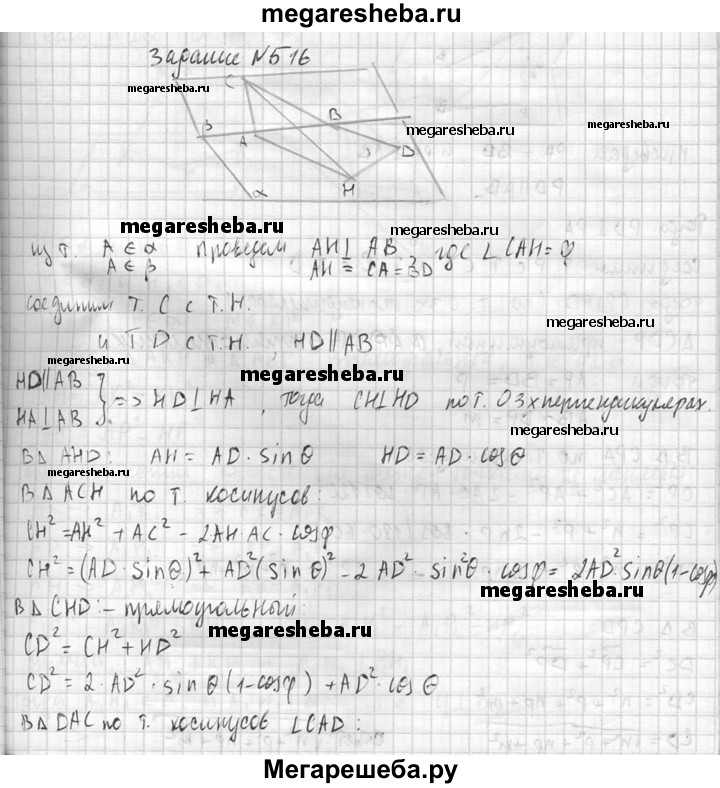 megaresheba.ru
Задание №516
megaresheba.ru
C
megaresheba.ru
β
A
B
D
megaresheba.ru
megaresheba.ru
α
H
megaresheba.ru
megaresheba.ru
из т. A ∈ α проведем, AH ⊥ AB, где ∠CAH = φ
A ∈ β AH = CA = BD
соединим т. C с т. H.
megaresheba.ru
и т. D с т. H, HD || AB
megaresheba.ru
megaresheba.ru
HD || AB
HA ⊥ AB } => HD ⊥ HA, тогда CH ⊥ HD по т. О 3х перпендикулярах.
megaresheba.ru
В Δ AHD: AH = AD · sin θ HD = AD · cos θ
megaresheba.ru
В Δ ACH по т. косинусов:
CH² = AH² + AC² - 2AH AC · cos φ
CH² = (AD · sin θ)² + AD² (sin θ)² - 2 AD² - sin² θ · cos φ = 2AD² sin θ (1 - cos φ)
megaresheba.ru
В Δ CHD: - прямоугольный:
megaresheba.ru
CD² = CH² + HD²
CD² = 2 · AD² · sin θ (1 - cos φ) + AD² · cos θ
megaresheba.ru
В Δ DAC по т. косинусов ∠CAD:
Мегарешеба.ру